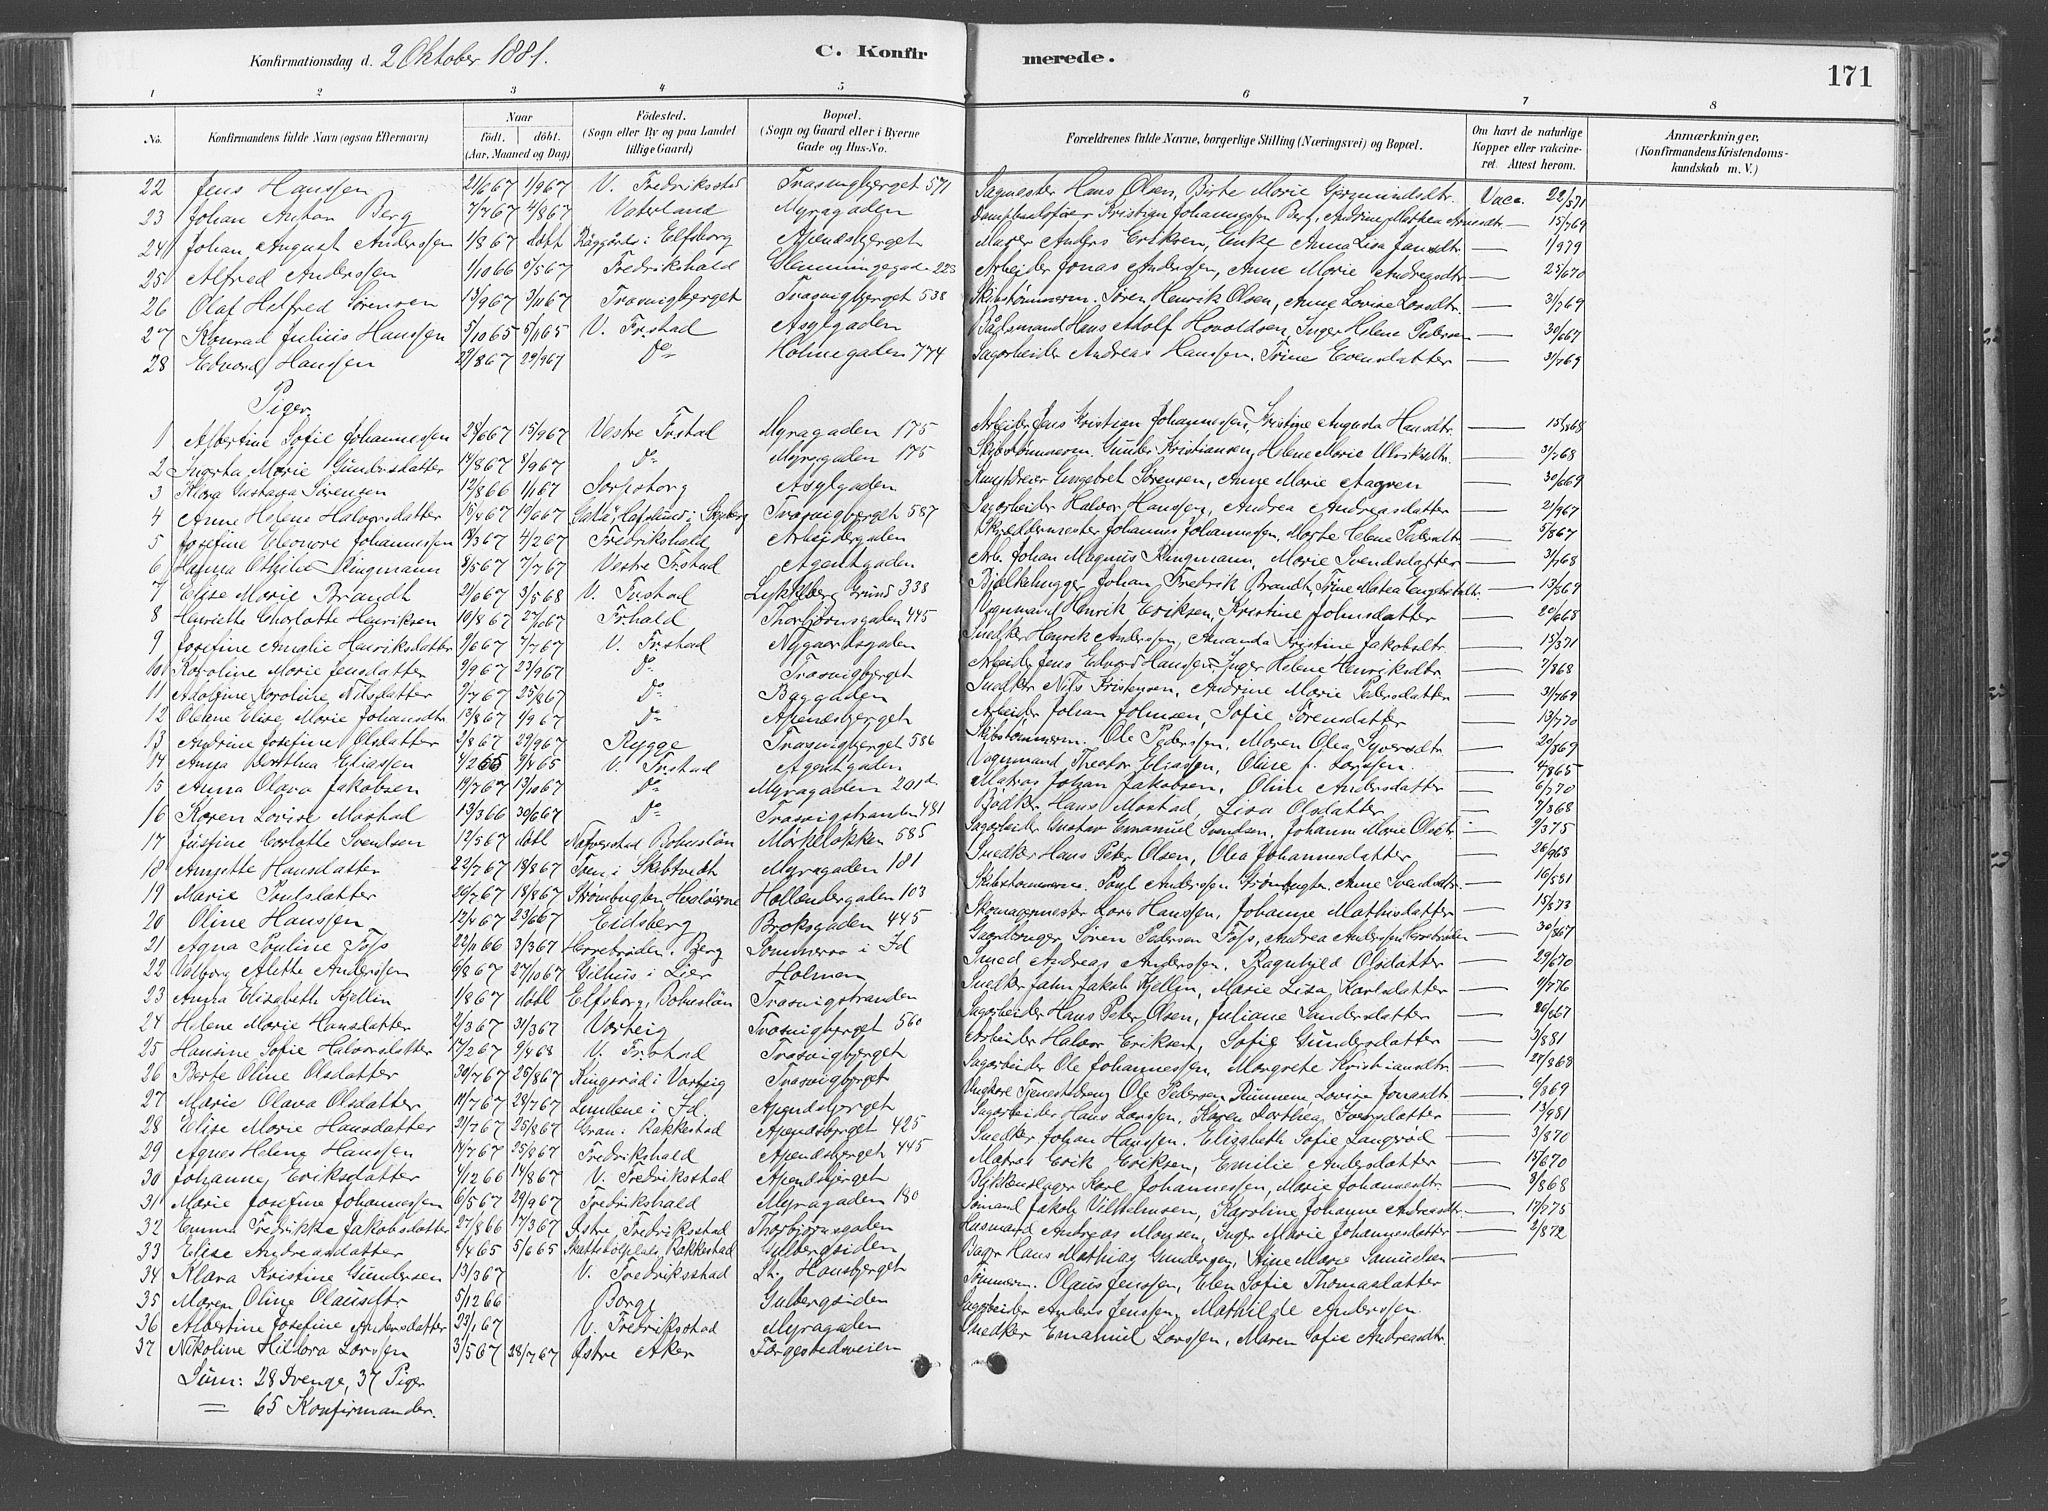 Konfirmationsdag d. 2 Oktober 1881. C. Konfir merede. 171
1 2 3 4 5 6 7 8
No. Konfirmandens fulde Navn (ogsaa Efternavn) Naar født. døbt. (Aar, Maaned og Dag) Fødested. (Sogn eller By og paa Landet tillige Gaard) Bopæl. (Sogn og Gaard eller i Byerne Gade og Hus-No. Forældrenes fulde Navne, borgerlige Stilling (Næringsvei) og Bopæl. Om havt de naturlige Kopper eller vakcineret. Attest herom. Anmærkninger, (Konfirmandens Kristendomskundskab m. V.)
22 Jens Hanssen 21/667 1/967 V. Fredriksstad Trosvigberget 571 Sagmester Hans Olsen, Birte Marie Gjermundsdtr. Vacc. 22/571
23 Johan Anton Berg 7/767 4/867 Vaterland Myragaden Kristian Johannessen Berg, Andrine Mathea Arnesdtr. — 15/769
24 Johan August Anderssen 1/867 døbt i Elfsborg Apenæsberget Murer Anders Eriksen, Enke Anna Lisa Jansdtr. — 1/979
25 Alfred Anderssen 1/1066 5/567 Fredrikshald Glemmingegade 223 Arbeider Jonas Anderssen, Anne Marie Andreasdtr. — 23/670
26 Olaf Hilfred Sørensen 13/967 3/1167 Trosvigberget Trosvigberget 538 Skibstømmerm. Søren Henrik Olsen, Anne Lovise Larsdtr. — 3/769
27 Konrad Julius Hanssen 5/1065 5/1165 V. Frstad Asylgaden Bådsmand Hans Adolf Hovoldsen, Inger Helene Pedersen — 30/667
28 Edvard Hanssen 22/867 29/967 Do Holmegaden 774 Sagarbeider Andreas Hanssen, Trine Evensdatter — 3/769
Piger
1 Albertine Sofie Johannessen 28/667 15/967 Vestre Frstad Myragaden 175 Arbeider Jens Kristian Johannessen, Kristine Augusta Hansdtr. — 15/868
2 Ingerta Marie Gundersdatter 14/867 8/967 Do Myragaden 175 Skibstømmerm. Gunder Kristiansen, Helene Marie Ulriksdtr. — 3/768
3 Klara Gustava Sørensen 12/866 1/167 Sarpsborg Asylgaden Kunstdreier Engebret Sørensen, Anne Marie Aagren — 30/669
4 Anne Helene Halvorsdatter 15/467 19/667 Hafslund i Skjeberg Trosvigberget 587 Sagarbeider Halvor Hanssen, Andrea Andreasdatter — 2/967
5 Josefine Eleonore Johannessen 14/367 4/267 Fredrikshald Arbeidergaden Skræddermester Johannes Johannessen, Marte Helene Pedersdtr. — 5/867
6 Hanna Othilie Ringmann 5/567 7/767 Vestre Frstad Agentgaden Arb. Johan Magnus Ringmann, Marie Svendsdatter — 3/768
7 Elise Marie Brandt 2/667 3/568 V. Frstad Lykkeberg Grund 338 Bjelkehugger Johan Fredrik Brandt, Trine Matea Engebretsdtr. — 13/869
8 Henriette Charlotte Henriksen 10/867 27/1067 Frhald Thorbjørnsgaden 445 Vognmand Henrik Eriksen, Kristine Johnsdatter — 20/668
9 Josefine Amalie Henriksdatter 9/667 7/767 V. Frstad Nygaardsgaden Snedker Henrik Anderssen, Amanda Kristine Jakobsdtr. — 15/371
10 Karoline Marie Jensdatter 2/967 23/967 Do Trosvigberget Arbeider Jens Edvard Hanssen, Inger Helene Henriksdtr. — 7/868
11 Adolfine Karoline Nilsdatter 2/767 25/867 Do Baggaden Snedker Nils Kristensen, Andrine Marie Pedersdatter — 3/769
12 Olene Elise Marie Johansdtr. 13/867 1/967 Do Apenæsberget Arbeider Johan Johnsen, Sofie Sørensdatter — 13/770
13 Andrine Josefine Olsdatter 2/867 29/967 Rygge Trosvigberget 586 Skibstømmerm. Ole Pederssen, Maren Olea Syversdtr. — 20/869
14 Anna Dorthea Eliassen 7/265 9/465 V. Frstad Agentgaden Vognmand Theodor Eliassen, Oline f. Larssen. — 4/865
15 Anna Olava Jakobsen 19/767 13/1067 Do Myragaden 201d Matros Johan Jakobsen, Oline Andersdatter — 6/770
16 Karen Lovise Mastad 13/366 30/667 Do Trosvigstranden 481 Bødker Hans Mastad, Lisa Olsdatter — 7/868
17 Justine Carlotte Svendsen 12/567 døbt Bohuslän Mørkeløkken 585 Sagarbeider Gustav Emanuel Svendsen, Johanne Marie Olsdtr. — 9/375
18 Annette Hansdatter 22/767 18/867 Tven i Skibtvedt Myragaden 181 Snedker Hans Peter Olsen, Olea Johannesdatter — 26/968
19 Marie Poulsdatter 29/767 18/867 Strømbugten Hvaløerne Hollendergaden 103 Skibstømmerm. Poul Anderssen Strømbugten, Anne Svendsdtr. — 16/581
20 Oline Hanssen 12/467 23/667 Eidsberg Broksgaden 445 Skomagermester Lars Hanssen, Johanne Mathisdatter — 15/873
21 Agna Pouline Foss 22/1166 3/367 Herrebrøden, Berg Sommerro i Id Gaardbruger Søren Pedersen Foss, Andrea Anderssen Herrebrøden — 30/867
22 Valborg Alette Anderssen 6/867 27/1067 Gilhus i Lier Holmen Smed Andreas Anderssen, Ragnhild Olsdatter — 29/670
23 Anna Elisabeth Kjellin 1/867 døbt Elfsborg, Bohuslän Trosvigstranden Snedker Jahn Jakob Kjellin, Marie Lisa Karlsdatter — 9/776
24 Helene Marie Hansdatter 2/367 31/367 Varteig Trosvigberget 560 Sagarbeider Hans Peter Olsen, Juliane Sandersdatter — 26/667
25 Hansine Sofie Halvorsdatter 17/267 9/468 V. Frstad Trosvigberget Arbeider Halvor Eriksen, Sofie Gundersdatter — 3/881
26 Berte Oline Olsdatter 30/767 25/867 Kingsrød i Varteig Trosvigberget Sagarbeider Ole Johannessen, Margrete Kristiansdtr. — 27/868
27 Marie Olava Olsdatter 11/767 28/767 Lundene i Id. Apenæsberget Ungkarl Tjenestdreng Ole Pedersen Lovise Jonasdtr. — 9/869
28 Elise Marie Hansdatter 21/767 25/867 Gran i Rakkestad Apenæsberget 425 Sagarbeider Hans Larssen, Karen Dorthea Iversdatter — 13/981
29 Agnes Helene Hanssen 14/767 25/867 Fredrikshald Apenæsberget 445 Snedker Johan Hanssen, Elisabeth Sofie Langrød — 3/870
30 Johanne Eriksdatter 4/1266 14/867 V. Fredriksstad Apenæsberget Matros Erik Eriksen, Emilie Andersdatter — 15/670
31 Marie Josefine Johannessen 6/567 29/967 Fredrikshald Myragaden 180 Blikkenslager Karl Johannessen, Marie Johannesdtr. — 3/868
32 Emma Fredrikke Jakobsdatter 27/866 17/367 Østre Fredriksstad Thorbjørnsgaden Sømand Jakob Vilhelmsen, Karoline Johanne Andreasdtr. — 17/775
33 Elise Andreasdatter 9/465 5/665 Rakkestad Gulbergsiden Husmand Andreas Monsen, Inger Marie Johannesdatter — 2/872
34 Klara Kristine Gundersen 13/367 V. Fredriksstad St. Hansberget Bager Hans Mathias Gundersen, Stine Marie Samuelsen —
35 Maren Oline Olausdtr. 5/1266 Borge Gulbergsiden Tømmerm. Olaus Jenssen, Elen Sofie Thomasdatter
36 Albertine Josefine Andersdatter 23/167 V. Fredriksstad Myragaden Sagarbeider Anders Jenssen, Mathilde Anderssen.
37 Nikoline Hildora Larssen 3/567 28/767 Østre Aker Færgestedsveien Snedker Emanuel Larssen, Maren Sofie Andreasdtr.
Sum: 28 Drenge, 37 Piger
= 65 Konfirmander.